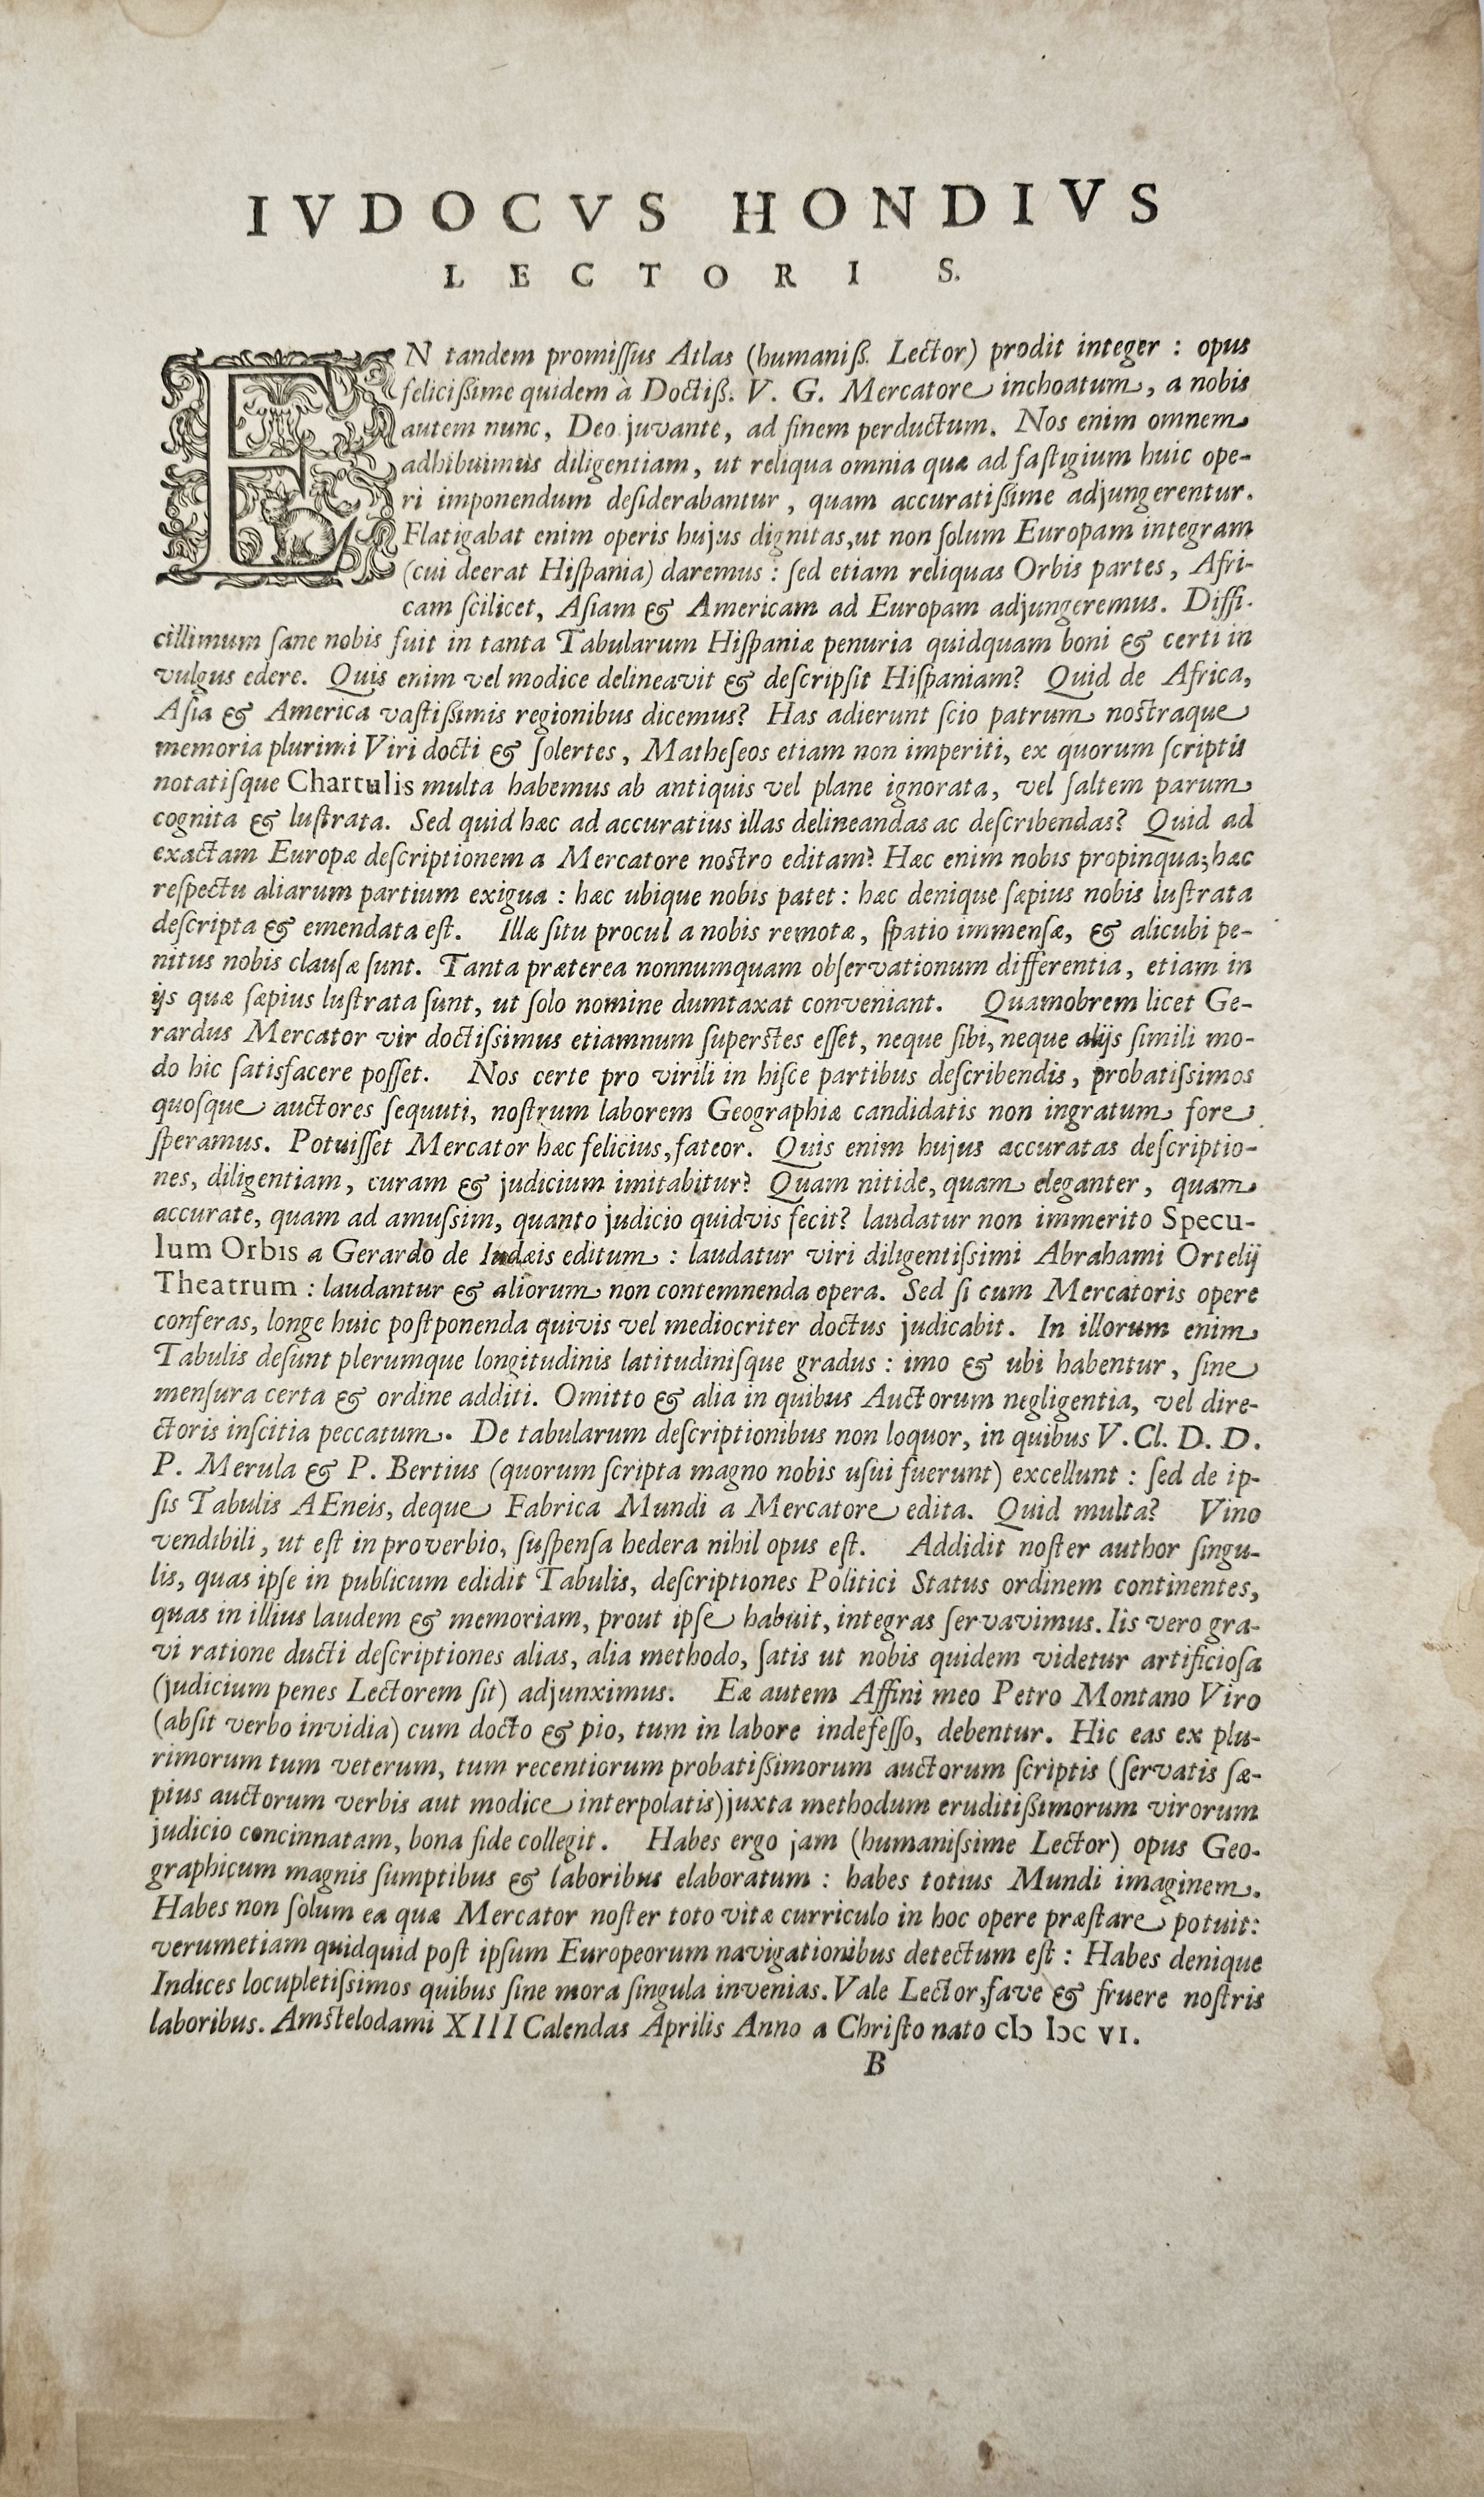 IVDOCVS HONDIVS
LECTORI S.
EN tandem promiſſus Atlas (humaniß. Lector) prodit integer : opus
feliciſſime quidem à Doctiß. V. G. Mercatore inchoatum, a nobis
autem nunc, Deo juvante, ad finem perductum. Nos enim omnem
adhibuimus diligentiam, ut reliqua omnia quæ ad faſtigium huic ope-
ri imponendum deſiderabantur, quam accuratiſſime adjungerentur.
Flatigabat enim operis hujus dignitas, ut non ſolum Europam integram
(cui deerat Hiſpania) daremus : ſed etiam reliquas Orbis partes, Afri-
cam ſcilicet, Aſiam & Americam ad Europam adjungeremus. Diffi-
cillimum ſane nobis fuit in tanta Tabularum Hiſpaniæ penuria quidquam boni & certi in
vulgus edere. Quis enim vel modice delineavit & deſcripſit Hiſpaniam? Quid de Africa,
Aſia & America vaſtiſſimis regionibus dicemus? Has adierunt ſcio patrum noſtraque
memoria plurimi Viri docti & ſolertes, Matheſeos etiam non imperiti, ex quorum ſcriptis
notatiſque Chartulis multa habemus ab antiquis vel plane ignorata, vel ſaltem parum
cognita & luſtrata. Sed quid hæc ad accuratius illas delineandas ac deſcribendas? Quid ad
exactam Europæ deſcriptionem a Mercatore noſtro editam? Hæc enim nobis propinqua; hæc
reſpectu aliarum partium exigua : hæc ubique nobis patet : hæc denique ſæpius nobis luſtrata
deſcripta & emendata eſt. Illæ ſitu procul a nobis remotæ, ſpatio immenſæ, & alicubi pe-
nitus nobis clauſæ ſunt. Tanta præterea nonnumquam obſervationum differentia, etiam in
ijs quæ ſæpius luſtrata ſunt, ut ſolo nomine dumtaxat conveniant. Quamobrem licet Ge-
rardus Mercator vir doctiſſimus etiamnum ſuperſtes eſſet, neque ſibi, neque alijs ſimili mo-
do hic ſatisfacere poſſet. Nos certe pro virili in hiſce partibus deſcribendis, probatiſſimos
quoſque auctores ſequuti, noſtrum laborem Geographiæ candidatis non ingratum fore
ſperamus. Potuiſſet Mercator hæc felicius, fateor. Quis enim hujus accuratas deſcriptio-
nes, diligentiam, curam & judicium imitabitur? Quam nitide, quam eleganter, quam
accurate, quam ad amuſſim, quanto judicio quidvis fecit? laudatur non immerito Specu-
lum Orbis a Gerardo de Iudæis editum : laudatur viri diligentiſſimi Abrahami Ortelij
Theatrum : laudantur & aliorum non contemnenda opera. Sed ſi cum Mercatoris opere
conferas, longe huic poſtponenda quivis vel mediocriter doctus judicabit. In illorum enim
Tabulis deſunt plerumque longitudinis latitudiniſque gradus : imo & ubi habentur, ſine
menſura certa & ordine additi. Omitto & alia in quibus Auctorum negligentia, vel dire-
ctoris inſcitia peccatum. De tabularum deſcriptionibus non loquor, in quibus V. Cl. D. D.
P. Merula & P. Bertius (quorum ſcripta magno nobis uſui fuerunt) excellunt : ſed de ip-
ſis Tabulis AEneis, deque Fabrica Mundi a Mercatore edita. Quid multa? Vino
vendibili, ut eſt in proverbio, ſuſpenſa hedera nihil opus eſt. Addidit noſter author ſingu-
lis, quas ipſe in publicum edidit Tabulis, deſcriptiones Politici Status ordinem continentes,
quas in illius laudem & memoriam, prout ipſe habuit, integras ſervavimus. Iis vero gra-
vi ratione ducti deſcriptiones alias, alia methodo, ſatis ut nobis quidem videtur artificioſa
(judicium penes Lectorem ſit) adjunximus. Eæ autem Affini meo Petro Montano Viro
(abſit verbo invidia) cum docto & pio, tum in labore indefeſſo, debentur. Hic eas ex plu-
rimorum tum veterum, tum recentiorum probatiſſimorum auctorum ſcriptis (ſervatis ſæ-
pius auctorum verbis aut modice interpolatis) juxta methodum eruditiſſimorum virorum
judicio concinnatam, bona fide collegit. Habes ergo jam (humaniſſime Lector) opus Geo-
graphicum magnis ſumptibus & laboribus elaboratum : habes totius Mundi imaginem.
Habes non ſolum ea quæ Mercator noſter toto vitæ curriculo in hoc opere præſtare potuit:
verumetiam quidquid poſt ipſum Europeorum navigationibus detectum eſt : Habes denique
Indices locupletiſſimos quibus ſine mora ſingula invenias. Vale Lector, fave & fruere noſtris
laboribus. Amſtelodami XIII Calendas Aprilis Anno a Chriſto nato cIↄ Iↄc VI.
B